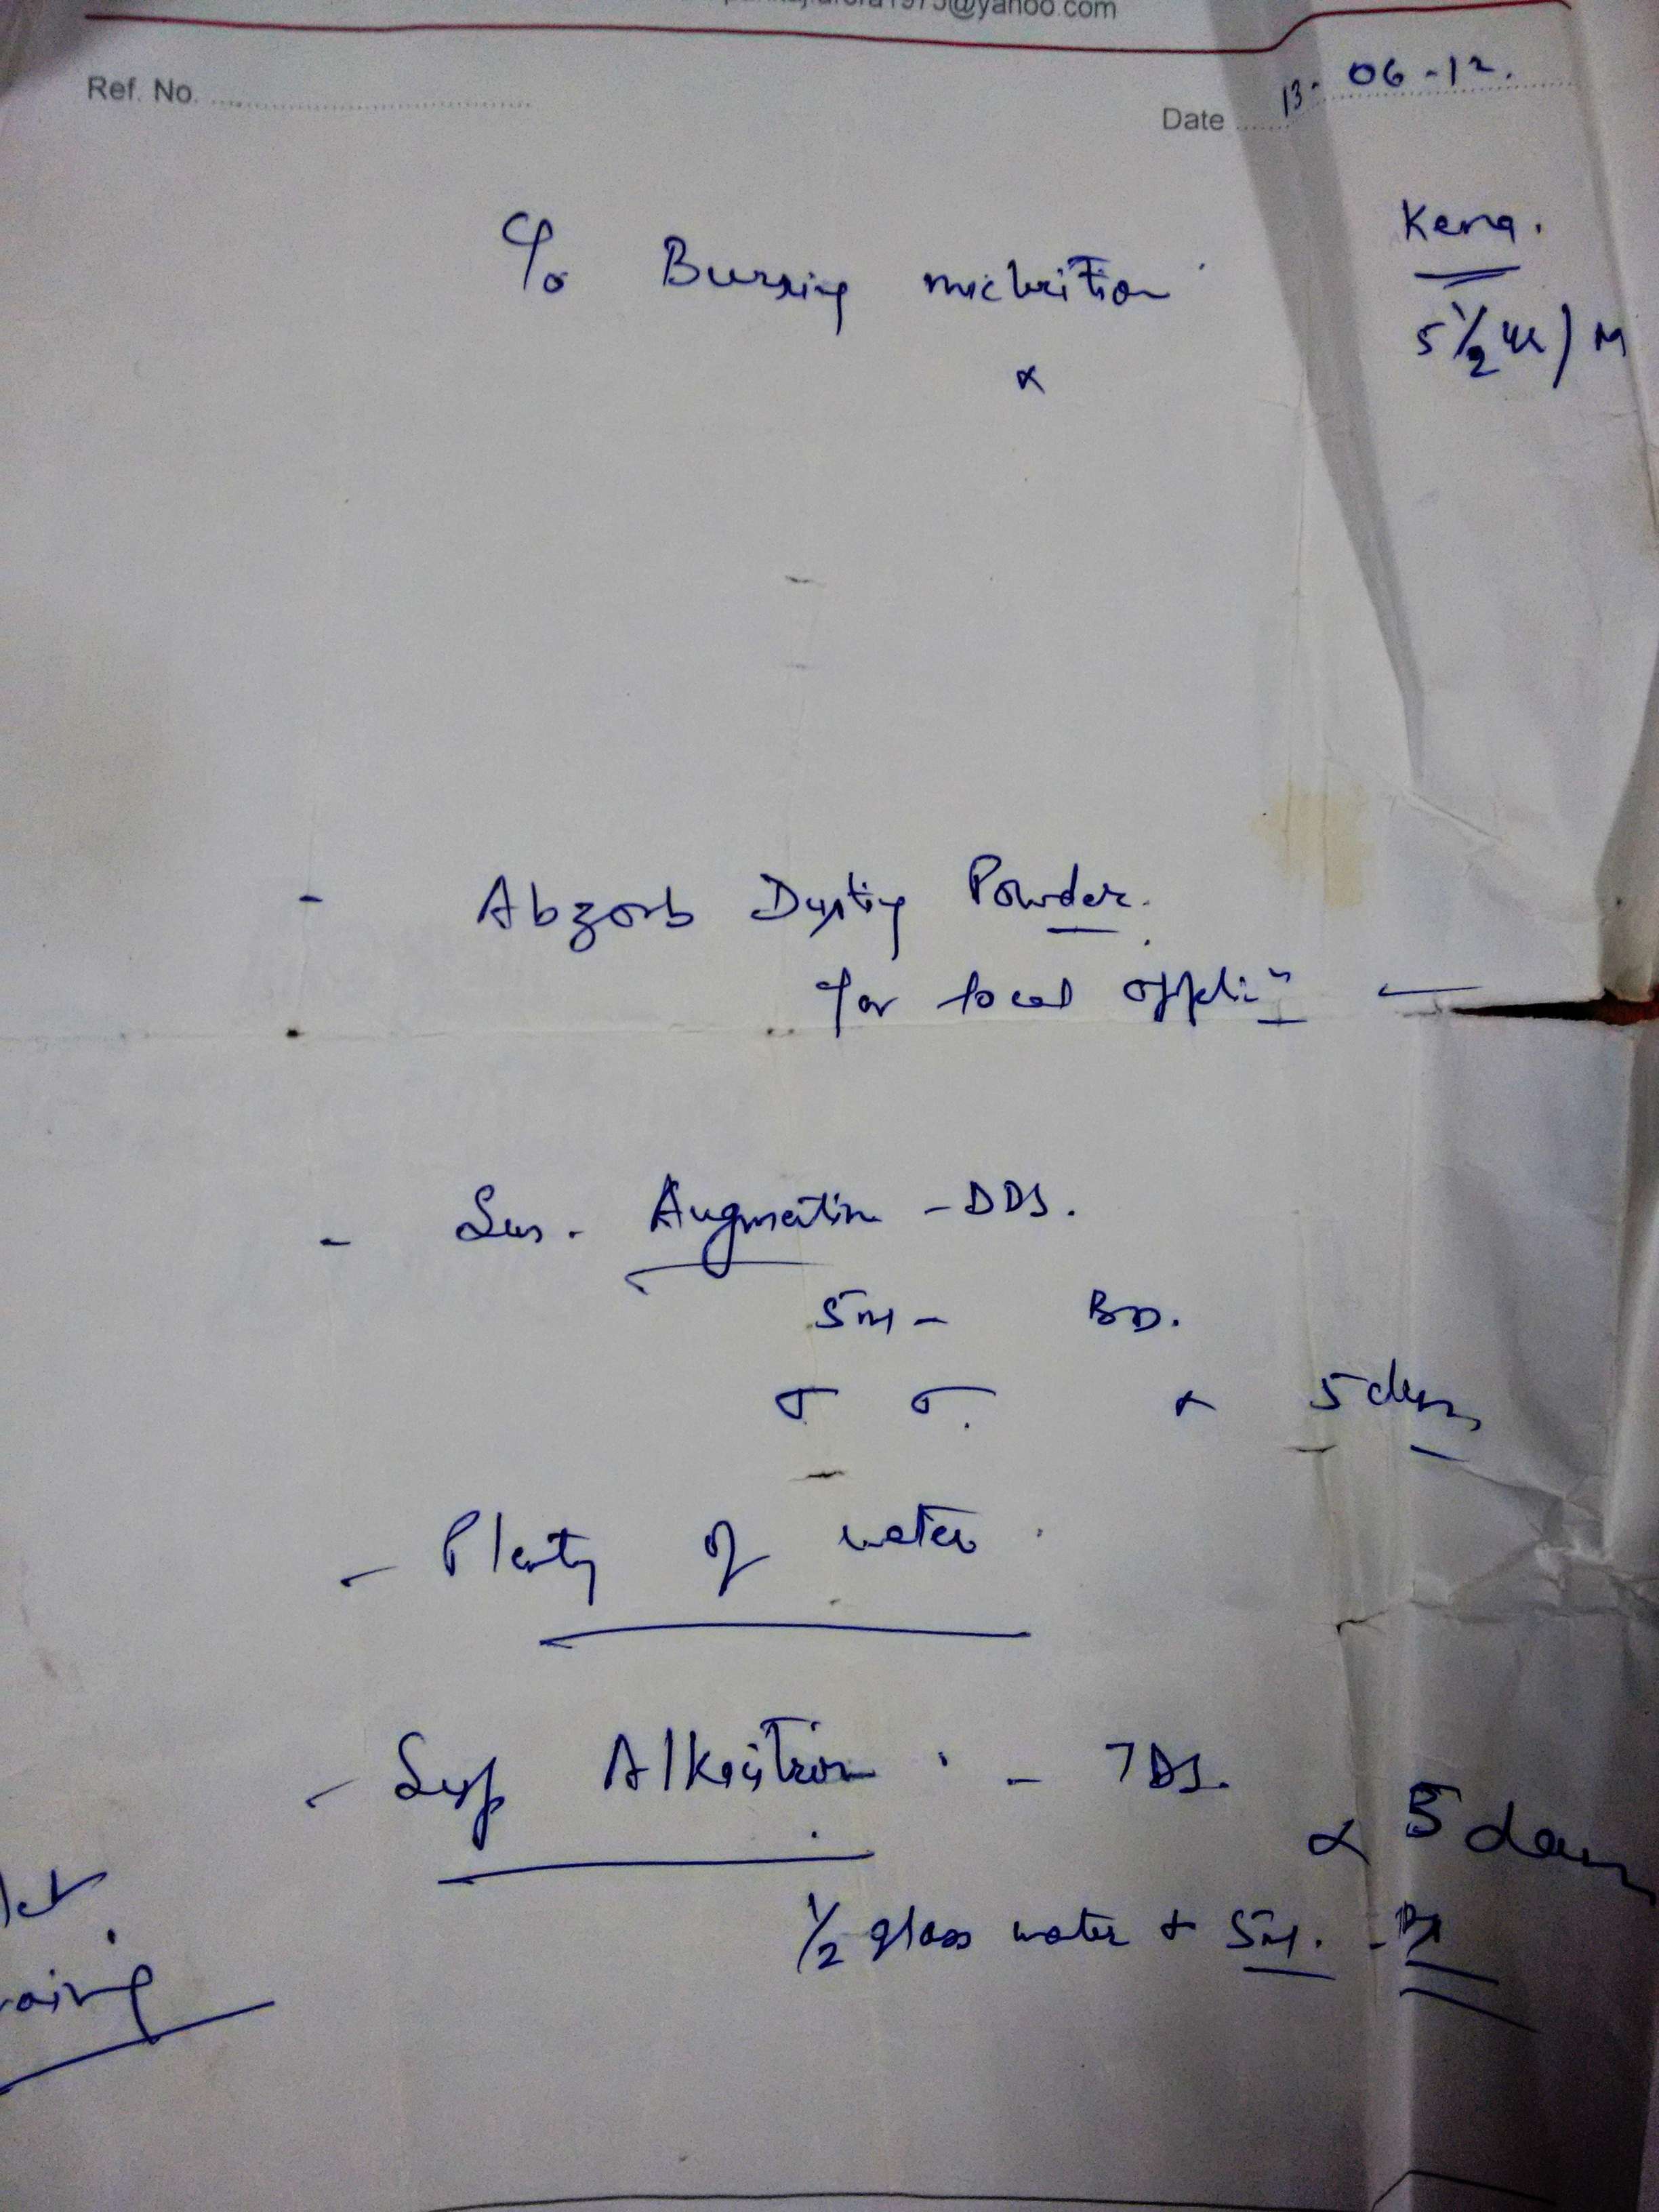 1975@yahoo.com
Ref. No.
Date 13-06-12.
C/o Burning micturition
Kena.
5 1/2 yr / M
- Abzorb Dusting Powder.
for local applin
- Sus. Augmentin - DDS.
5ml - BD.
x 5 days
- Plenty of water
- Syp Alkacitron - TDS.
x 5 days
1/2 glass water + 5ml.